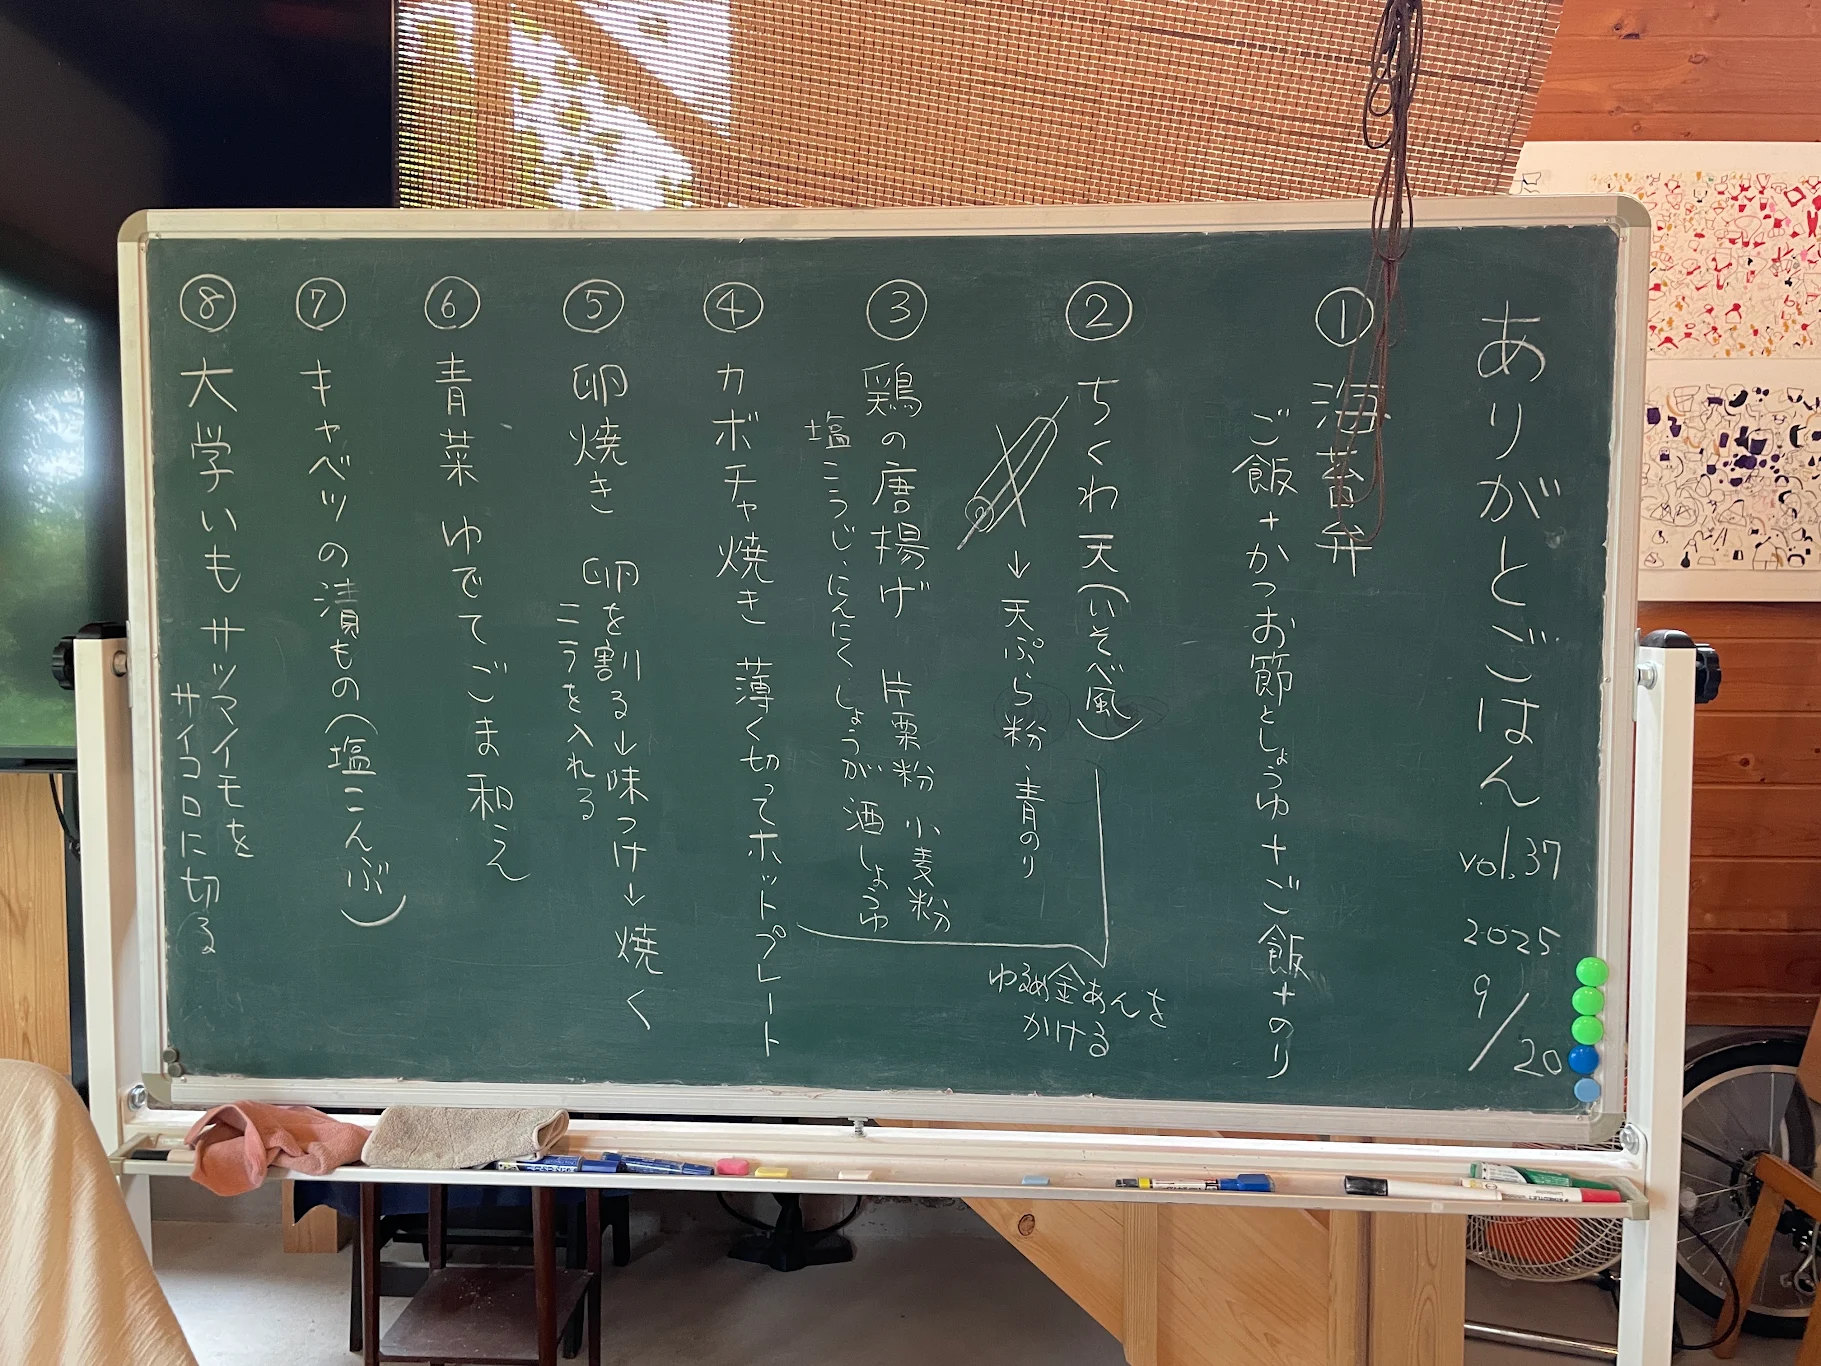 ありがとごはん vol.37 2025 9/20
① 海苔弁
ご飯+かつお節としょうゆ+ご飯+のり
② ちくわ天(いそべ風)
↓天ぷら粉、青のり
③ 鶏の唐揚げ 片栗粉 小麦粉
塩こうじ、にんにく、しょうが 酒 しょうゆ
ゆるめ金あんを
かける
④ カボチャ焼き 薄く切ってホットプレート
⑤ 卵焼き 卵を割る→味つけ→焼く
ニラを入れる
⑥ 青菜 ゆでてごま和え
⑦ キャベツの漬もの(塩こんぶ)
⑧ 大学いも サツマイモを
サイコロに切る